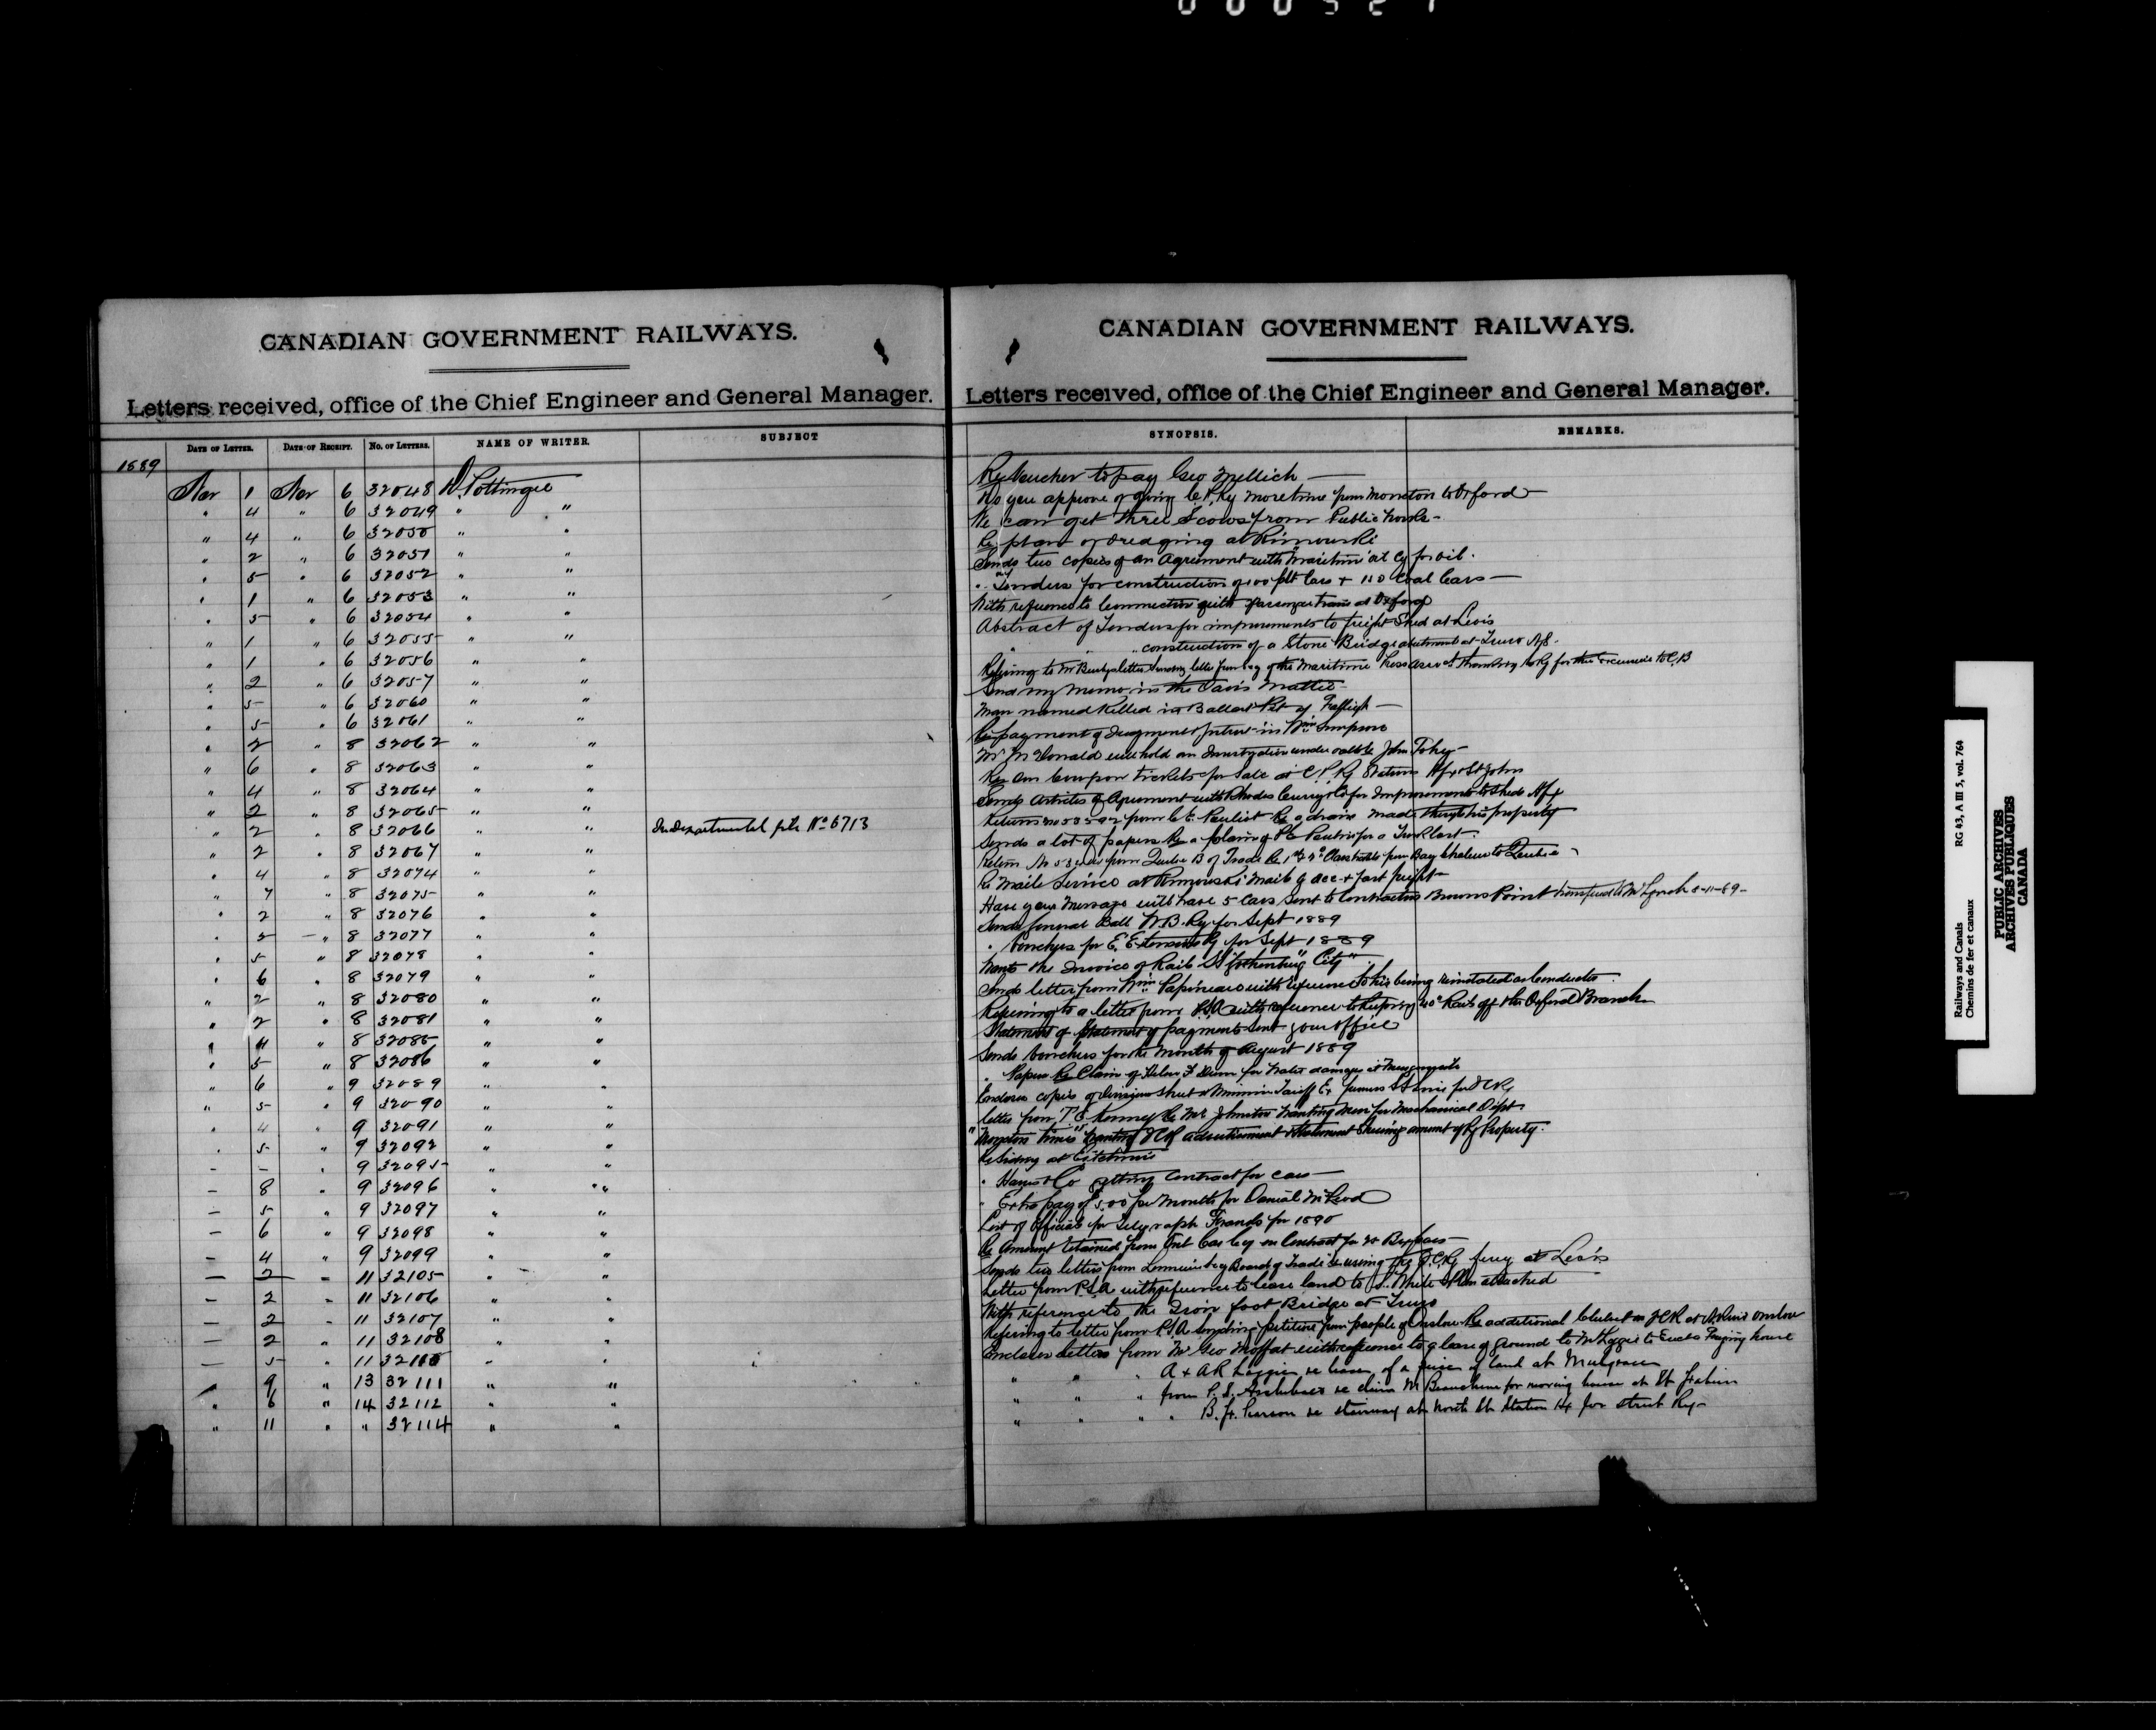 000527
CANADIAN GOVERNMENT RAILWAYS.
Letters received, office of the Chief Engineer and General Manager.
DATE OF LETTER. DATE OF RECEIPT. NO. OF LETTERS. NAME OF WRITER. SUBJECT
1889
Nov 1 Nov 6 32048 D. Pottinger
" 4 " 6 32049 " "
" 4 " 6 32050 " "
" 2 " 6 32051 " "
" 5 " 6 32052 " "
" 1 " 6 32053 " "
" 5 " 6 32054 " "
" 1 " 6 32055 " "
" 1 " 6 32056 " "
" 2 " 6 32057 " "
" 5 " 6 32060 " "
" 5 " 6 32061 " "
" 2 " 8 32062 " "
" 6 " 8 32063 " "
" 4 " 8 32064 " "
" 2 " 8 32065 " "
" 2 " 8 32066 " " In Departmental file No 6713
" 2 " 8 32067 " "
" 4 " 8 32074 " "
" 7 " 8 32075 " "
" 2 " 8 32076 " "
" 5 " 8 32077 " "
" 5 " 8 32078 " "
" 6 " 8 32079 " "
" 2 " 8 32080 " "
" 2 " 8 32081 " "
" 4 " 8 32085 " "
" 5 " 8 32086 " "
" 6 " 9 32089 " "
" 5 " 9 32090 " "
" 4 " 9 32091 " "
" 5 " 9 32092 " "
- - " 9 32095 " "
- 8 " 9 32096 " "
- 5 " 9 32097 " "
- 6 " 9 32098 " "
- 4 " 9 32099 " "
- 2 " 11 32105 " "
- 2 " 11 32106 " "
- 2 " 11 32107 " "
- 2 " 11 32108 " "
- 5 " 11
9 " 13 32111 " "
" 6 " 14 32112 " "
" 11 " " 32114 " "
CANADIAN GOVERNMENT RAILWAYS.
Letters received, office of the Chief Engineer and General Manager.
SYNOPSIS. REMARKS.
Re Voucher to pay Geo Mellich
Do you approve of giving C.P. Ry more time from Moncton to Oxford
We can get three Scows from Public Works
Re plan of dredging at Rimouski
Sends two copies of an Agreement with Maritime Oil Cy for oil.
" Tenders for construction of 100 plt Cars + 110 Coal Cars
With reference to Connection with passenger trains at Oxford
Abstract of Tenders for improvements to freight Shed at Levis
" " " construction of a Stone Bridge abutment at Truro N.S.
Refering to Mr letter letter from of the Maritime Press for the to C.B
Send my memo in the Davis Matter
Man named Killed in Ballast Pit of
Re payment of Judgment + Interest in Wm Simpson
Mr McDonald will hold an Investigation under oath Re John Tohey
Re our coupon tickets for Sale at C.P. Ry Stations Hfx + St John
Sends Articles of Agreement with Rhodes Curry + Co for Improvements to Sheds Hfx
Returns No from C.E. Re a drain made through his property
Sends a lot of papers Re a claim of for a
Return No from Quebec B of Trade Re 1st + 2d Class tickets from Bay Chaleur to Quebec
Re Mail Service at Rimouski Mail of acc + fast freight
Have your message will have 5 Cars Sent to Contractors Browns Point transferred to Mr Lynch 8-11-89-
Sends General Ball W.B. Ry for Sept 1889
" Vouchers for E. Extension Ry for Sept 1889
Wants the Invoice of Rails SS "Gothenburg City"
Sends letter from Wm Papineau with reference to his being reinstated as Conductor
Refering to a letter from P.S.A. with reference to keeping Rails off the Oxford Branch
Statement of Statement of payments sent your office
Sends Vouchers for the Month of August 1889
" Papers Re Claim of Helen F for Water damages at
Encloses copies of Division Sheet + Minimum Tariff Ex for ICRy
Letter from T.E. Kenny Re Mr Johnston wanting Men for Mechanical Dept
"Moncton Times" wanting ICR advertisement + Statement Shewing amount of Ry Property.
Re Siding at
" + Co getting Contract for cars
" Extra pay of 5.00 per month for Daniel McLeod
List of Officials for Telegraph Franks for 1890
Re Amount retained from Ont Car Coy on Contract for
Sends two letters from Board of Trade Re using the I.C.Ry ferry at Levis
Letter from P.S.A. with reference to lease land to S. White + Plan attached
With reference to the Iron foot Bridge at Truro
Refering to letter from P.S.A. petition from people of Onslow Re additional Culvert on ICR at Onslow
Encloses letter from Mr Geo Moffat with reference to a lease of ground to to Erect a house
" " " A + A R Loggie re lease of a piece of land at Mulgrave
" " " from P.S. Archibald re claim M for moving house at St Fabien
" " " B. F. Pearson re stairway at North St Station Hx for street Ry
Railways and Canals
Chemins de fer et canaux
RG 43, A III 5, vol. 764
PUBLIC ARCHIVES
ARCHIVES PUBLIQUES
CANADA